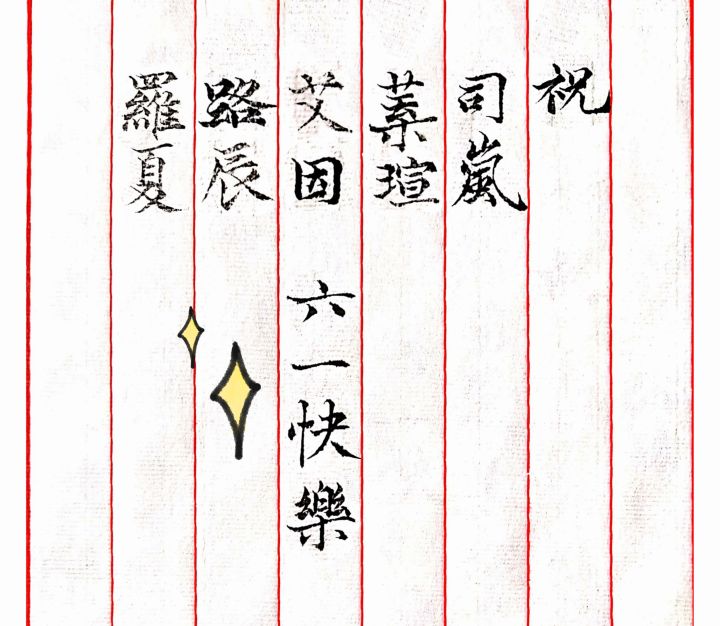 祝
司嵐
葉瑄
艾因 六一快樂
路辰
羅夏